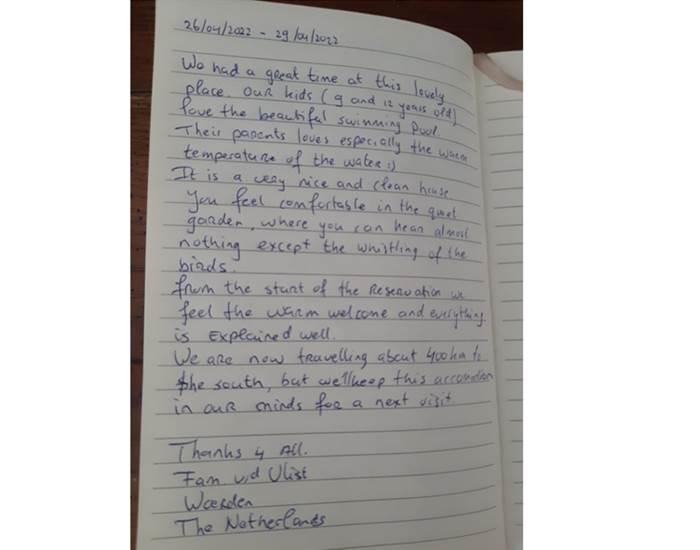 26/04/2022 - 29/04/2022
We had a great time at this lovely
place. Our kids (9 and 12 years old)
love the beautiful swimming pool.
Their parents loves especially the warm
temperature of the water :)
It is a very nice and clean house
You feel comfortable in the quiet
garden, where you can hear almost
nothing except the whistling of the
birds.
from the start of the Reservation we
feel the warm welcome and everything
is Explained well.
We are now travelling about 400km to
the south, but we'll keep this
in our minds for a next visit.
Thanks 4 All.
Fam v.d Vlist
The Netherlands